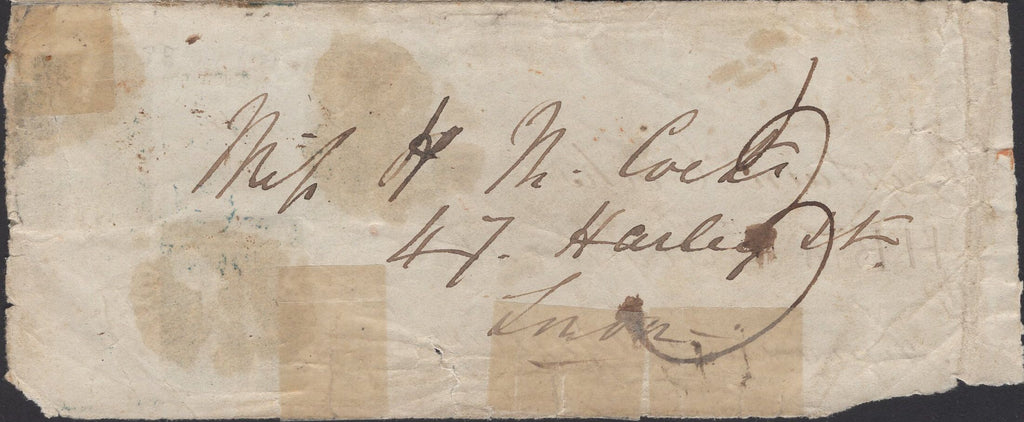 Miss H M. Cocks
47. Harley St.
Lnon